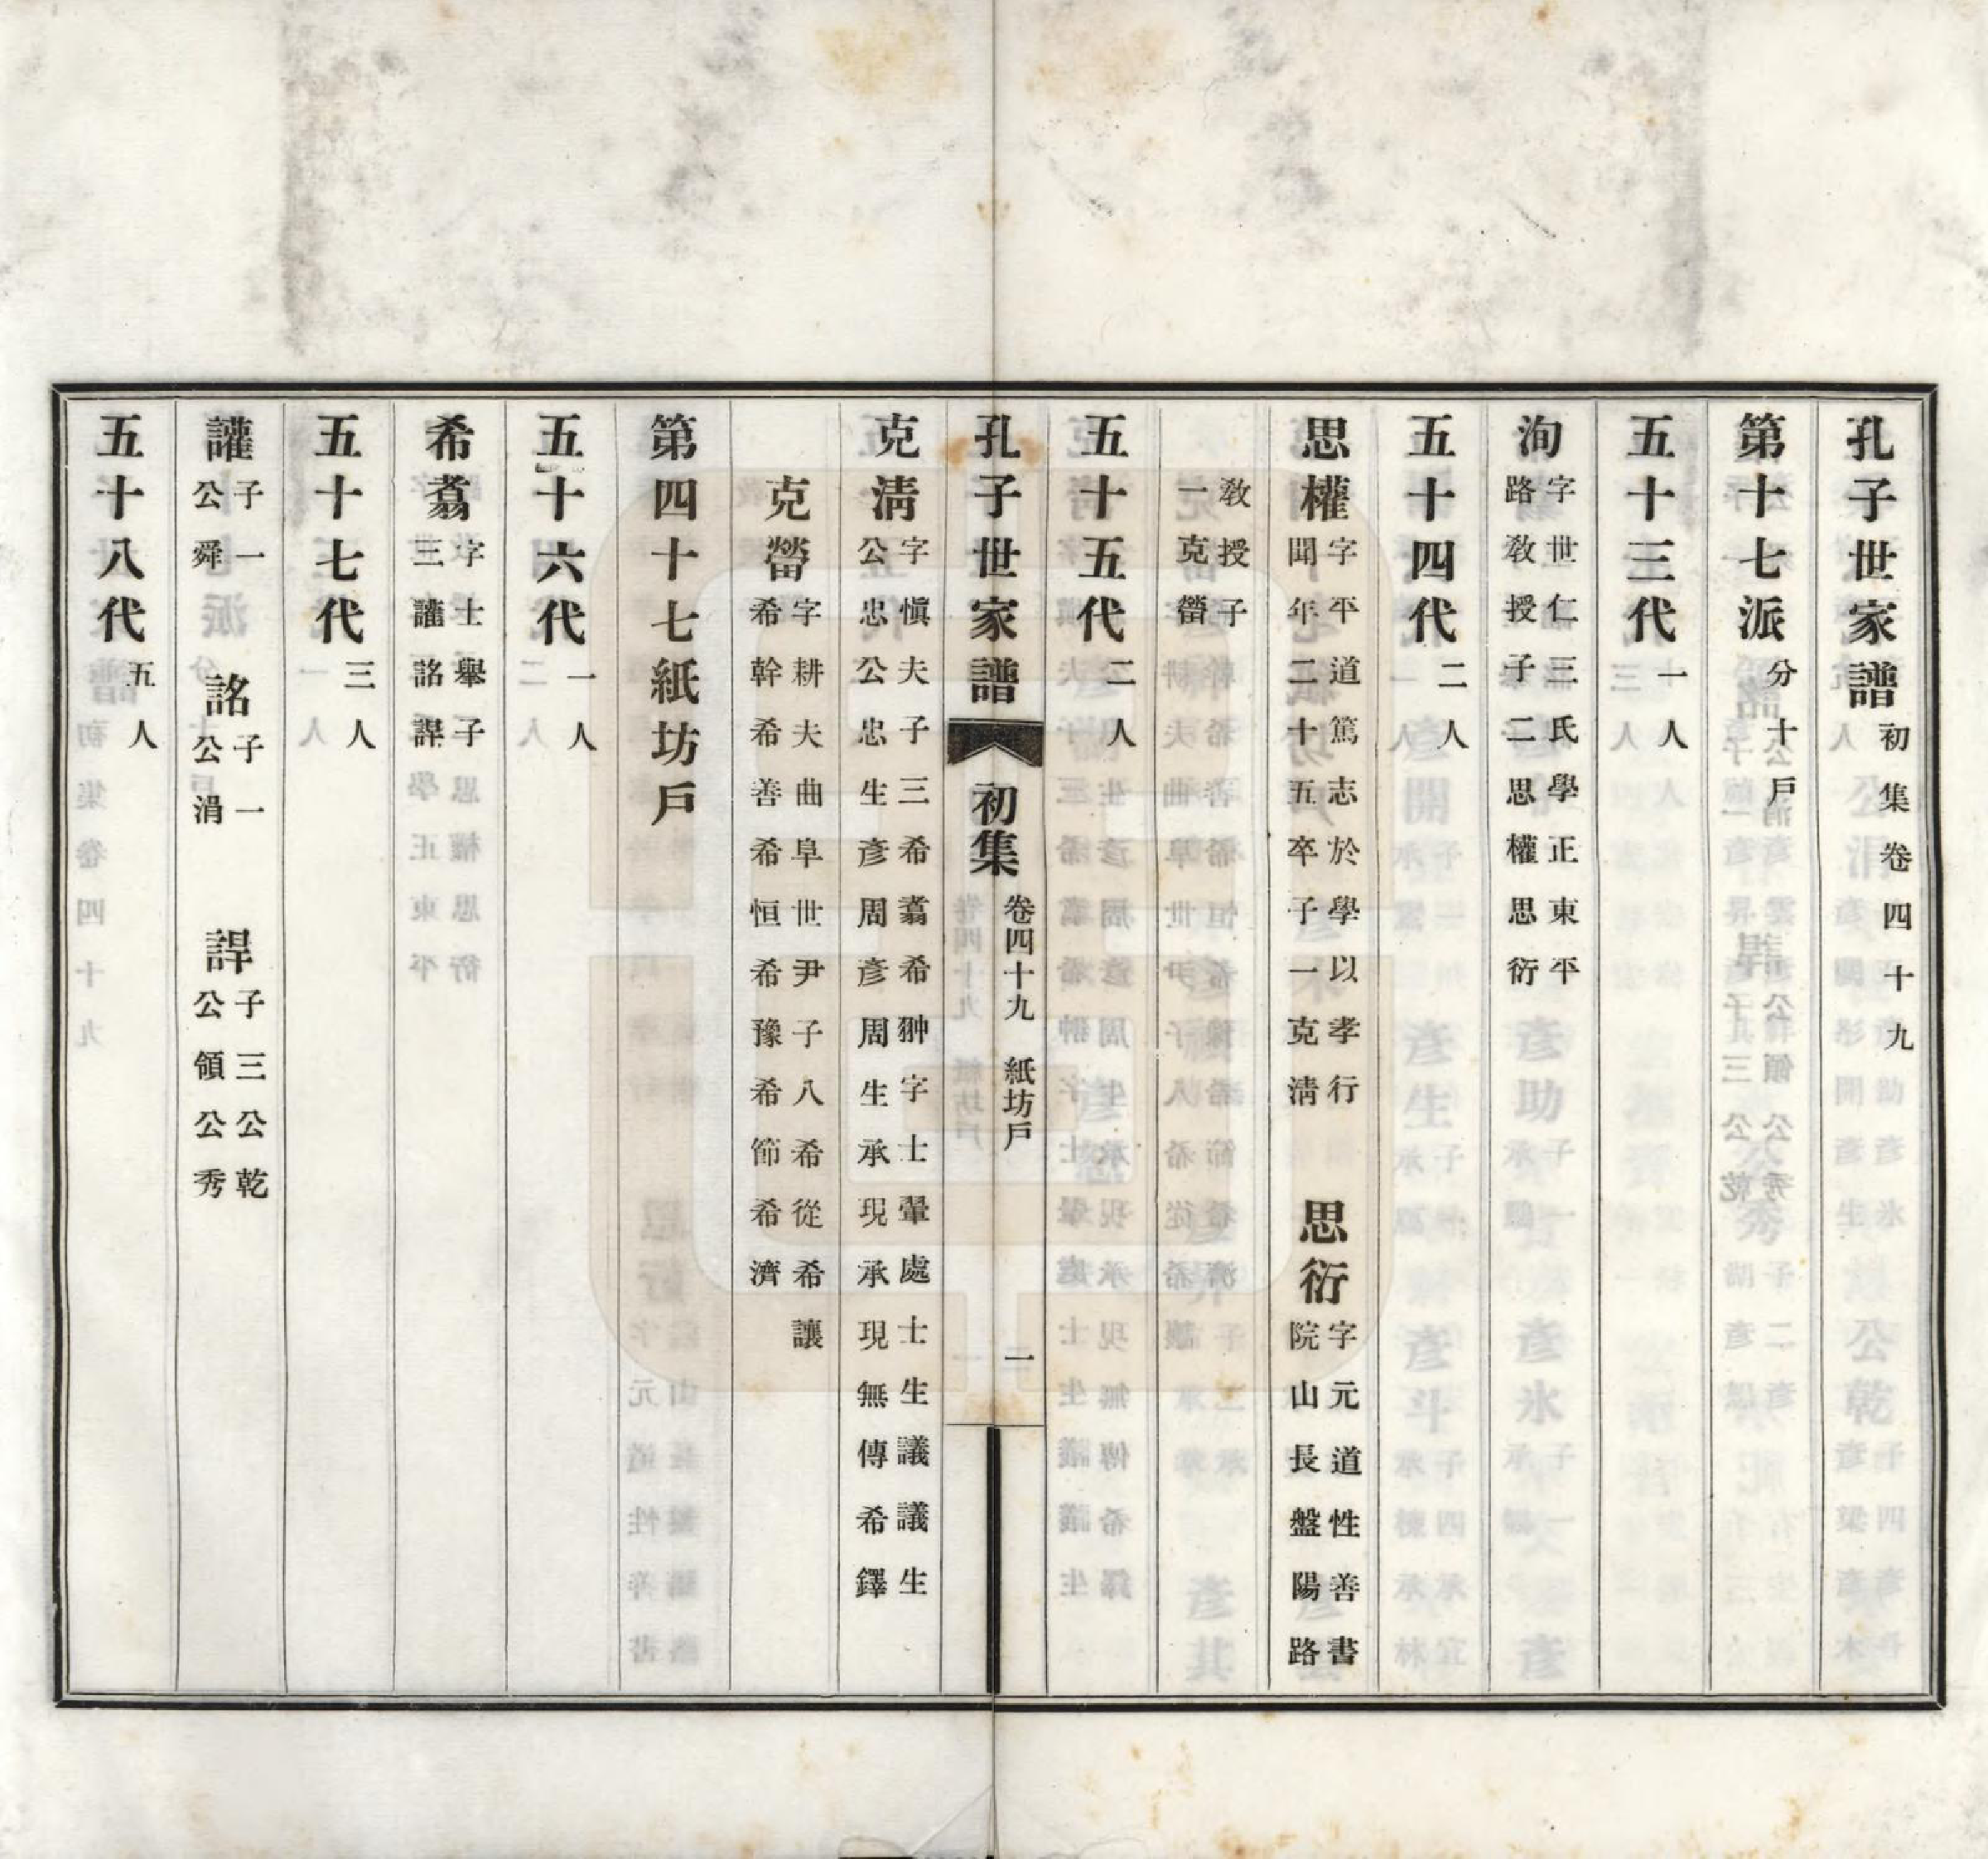 孔子世家譜 初集卷四十九
第十七派 分十戶
五十三代 一人
洵 字世仁三氏學正東平
路教授子二思權思衍
五十四代 二人
思權 字平道篤志於學以孝行
聞年二十五卒子一克淸
思衍 字元道性善書
院山長盤陽路
教授子
一克𤇾
五十五代 二人
孔子世家譜 初集 卷四十九 紙坊戶 一
克淸 字愼夫子三希翥希翀字士翬處士生議議生
公忠公忠生彥周彥周生承現承現無傳希鐸
克𤇾 字耕夫曲阜世尹子八希從希讓
希幹希善希恒希豫希節希濟
第四十七紙坊戶
五十六代 一人
希翥 字士舉子
三讙詺諽
五十七代 三人
讙 子一
公舜
詺 子一
公涓
諽 子三公乾
公領公秀
五十八代 五人